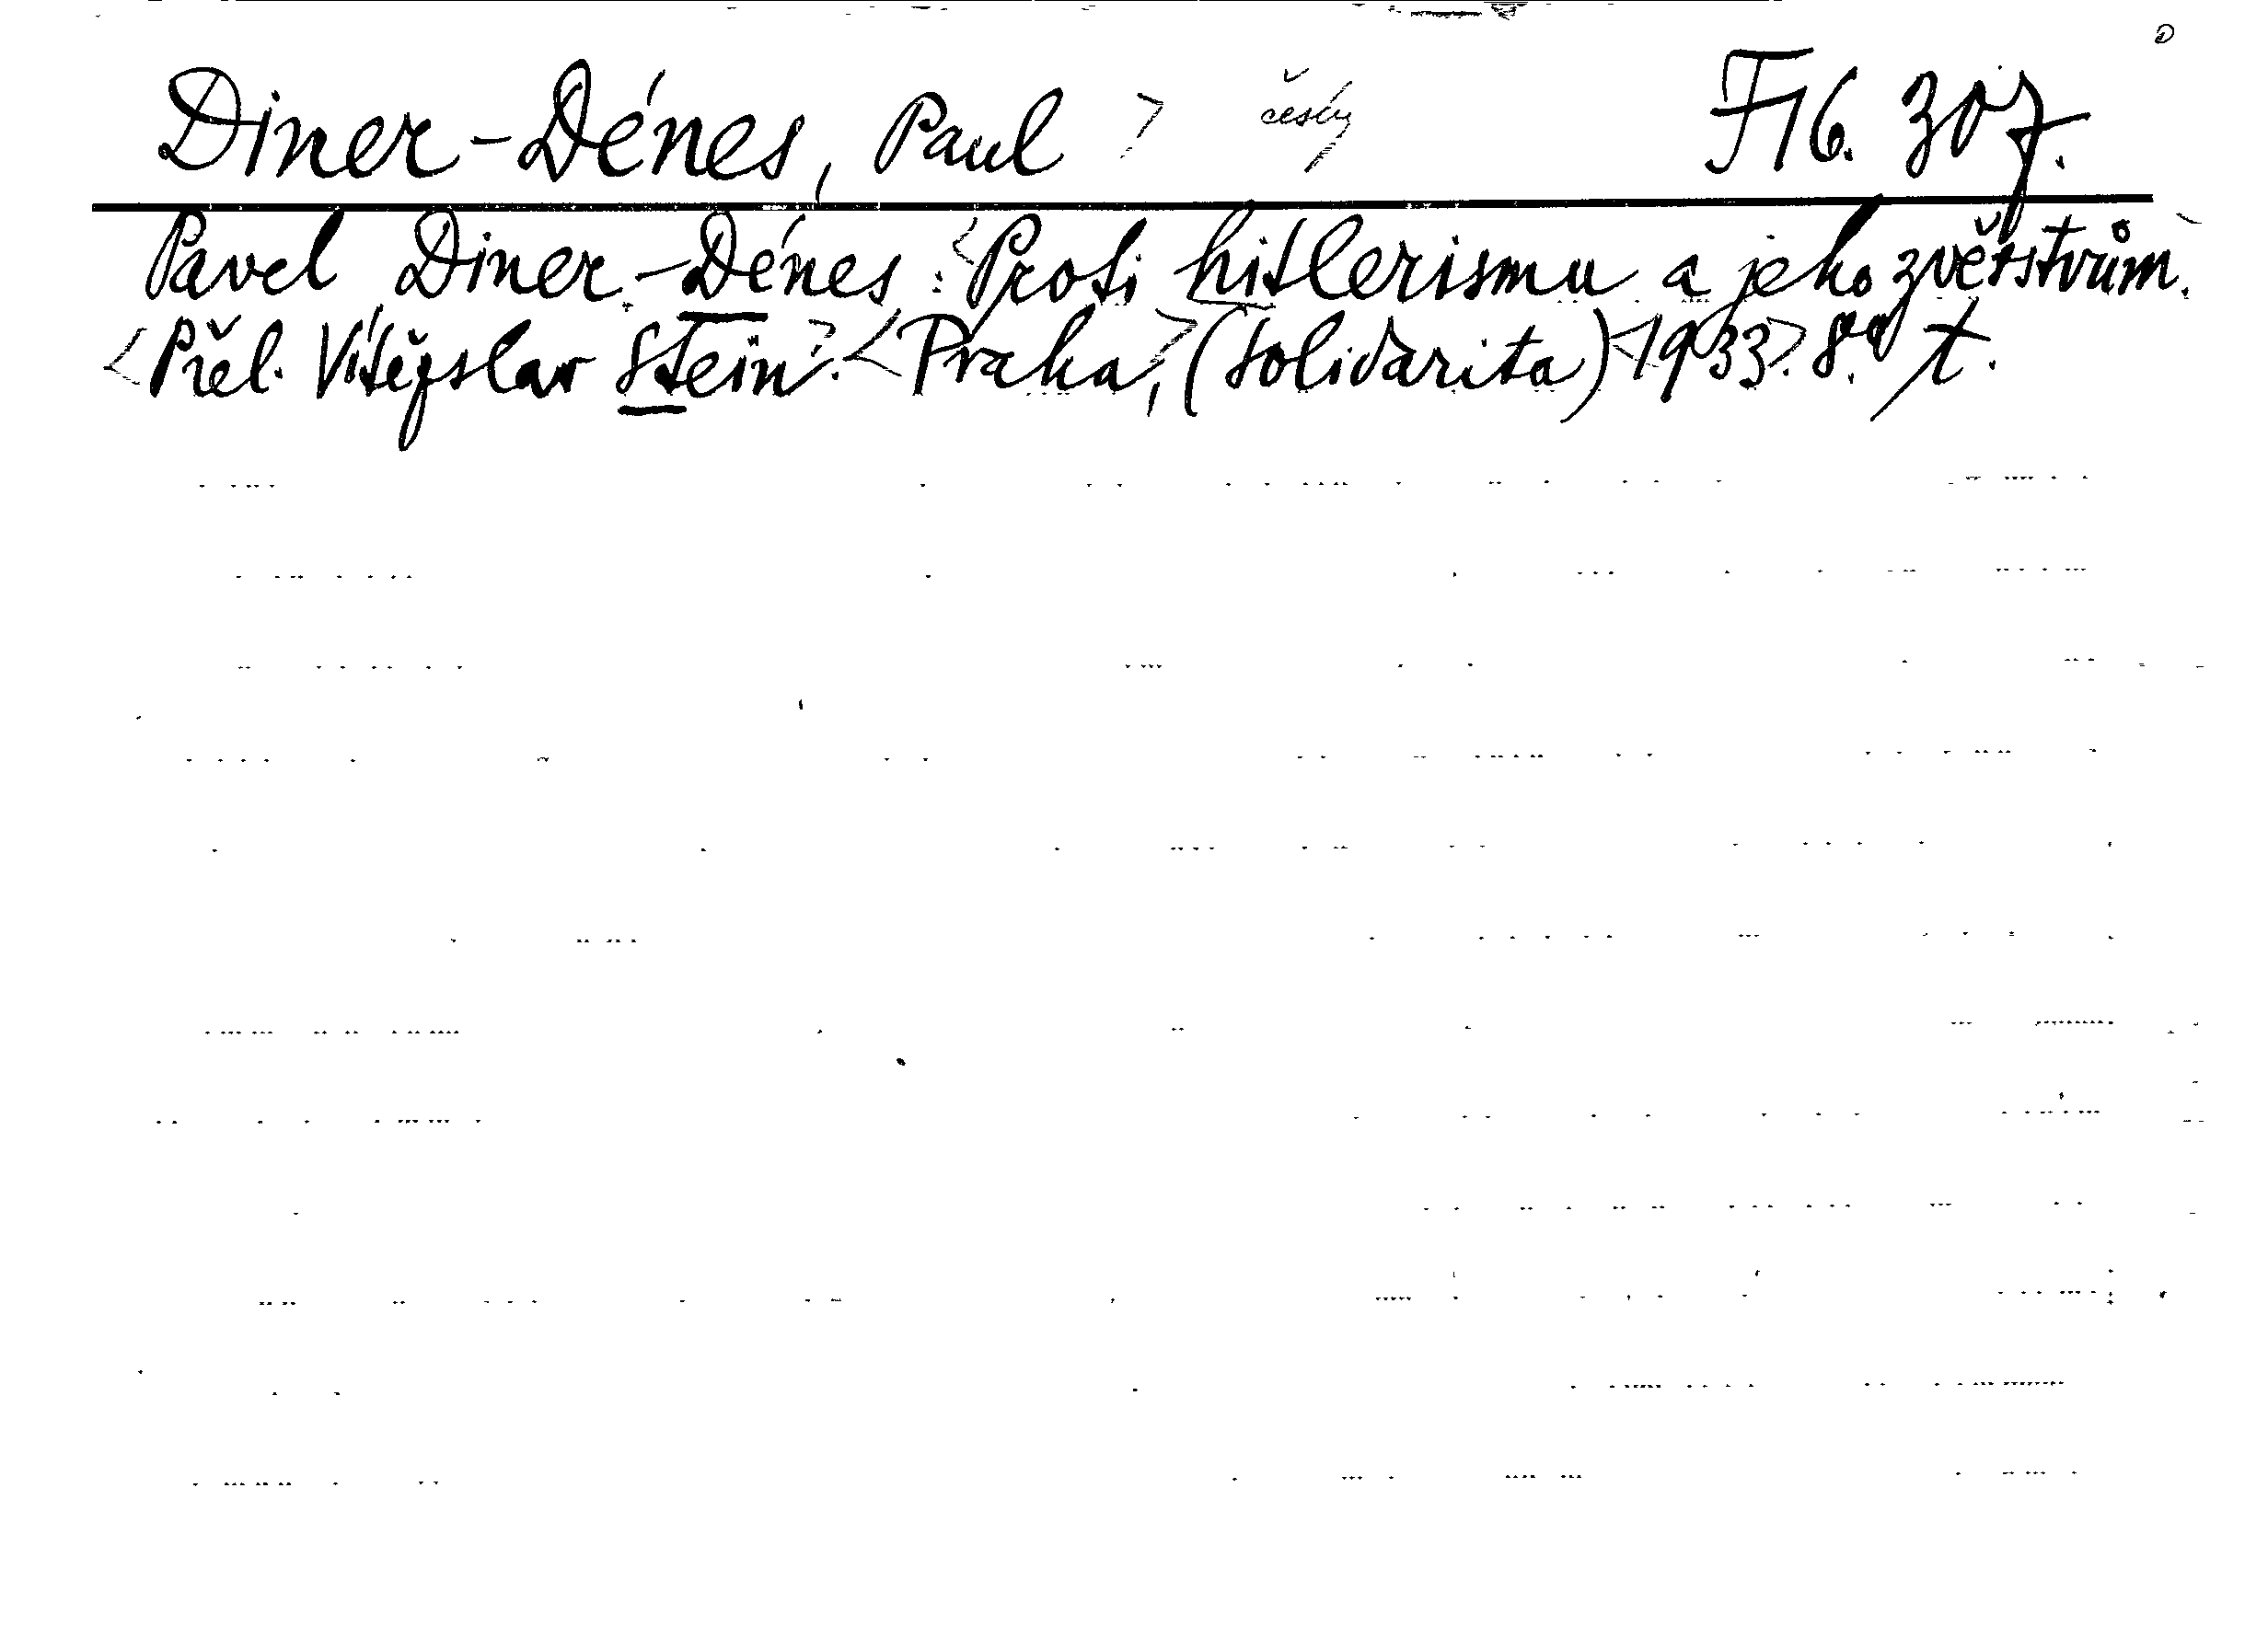 Diner-Dénes, Paul > česky F 16. 307.
Pavel Diner-Dénes: <Proti hitlerismu a jeho zvěrstvům.
<Přel. Vítězslav Stein>. <Praha,> (Solidarita) <1933>. 8.° t.